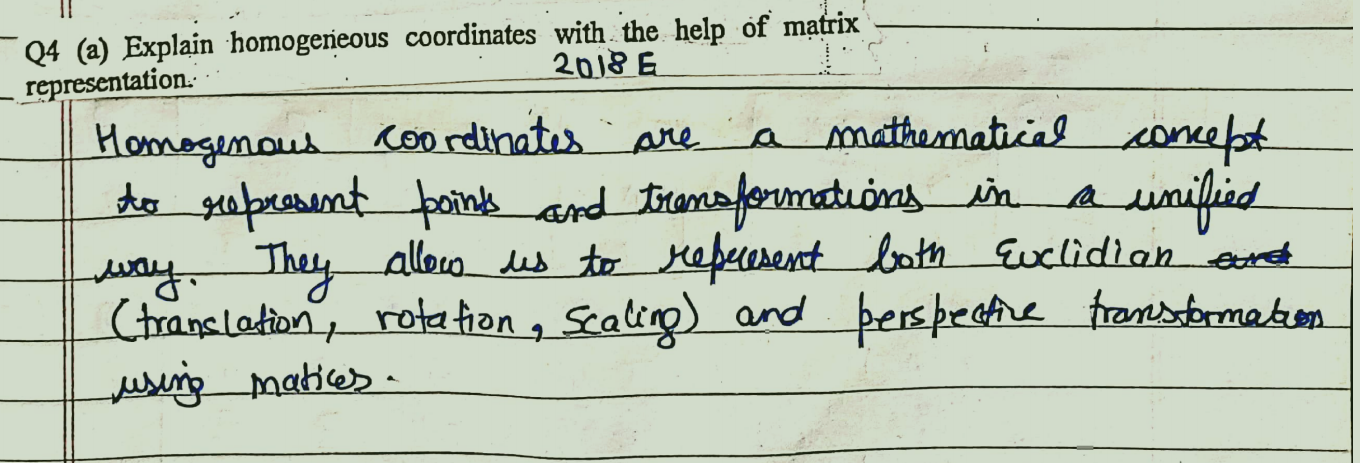 Q4 (a) Explain homogeneous coordinates with the help of matrix
representation.
2018 E
Homogenous coordinates are a mathematical concept
to represent points and transformations in a unified
way. They allow us to represent both Euclidian and
(translation, rotation, scaling) and perspective transformation
using matices.